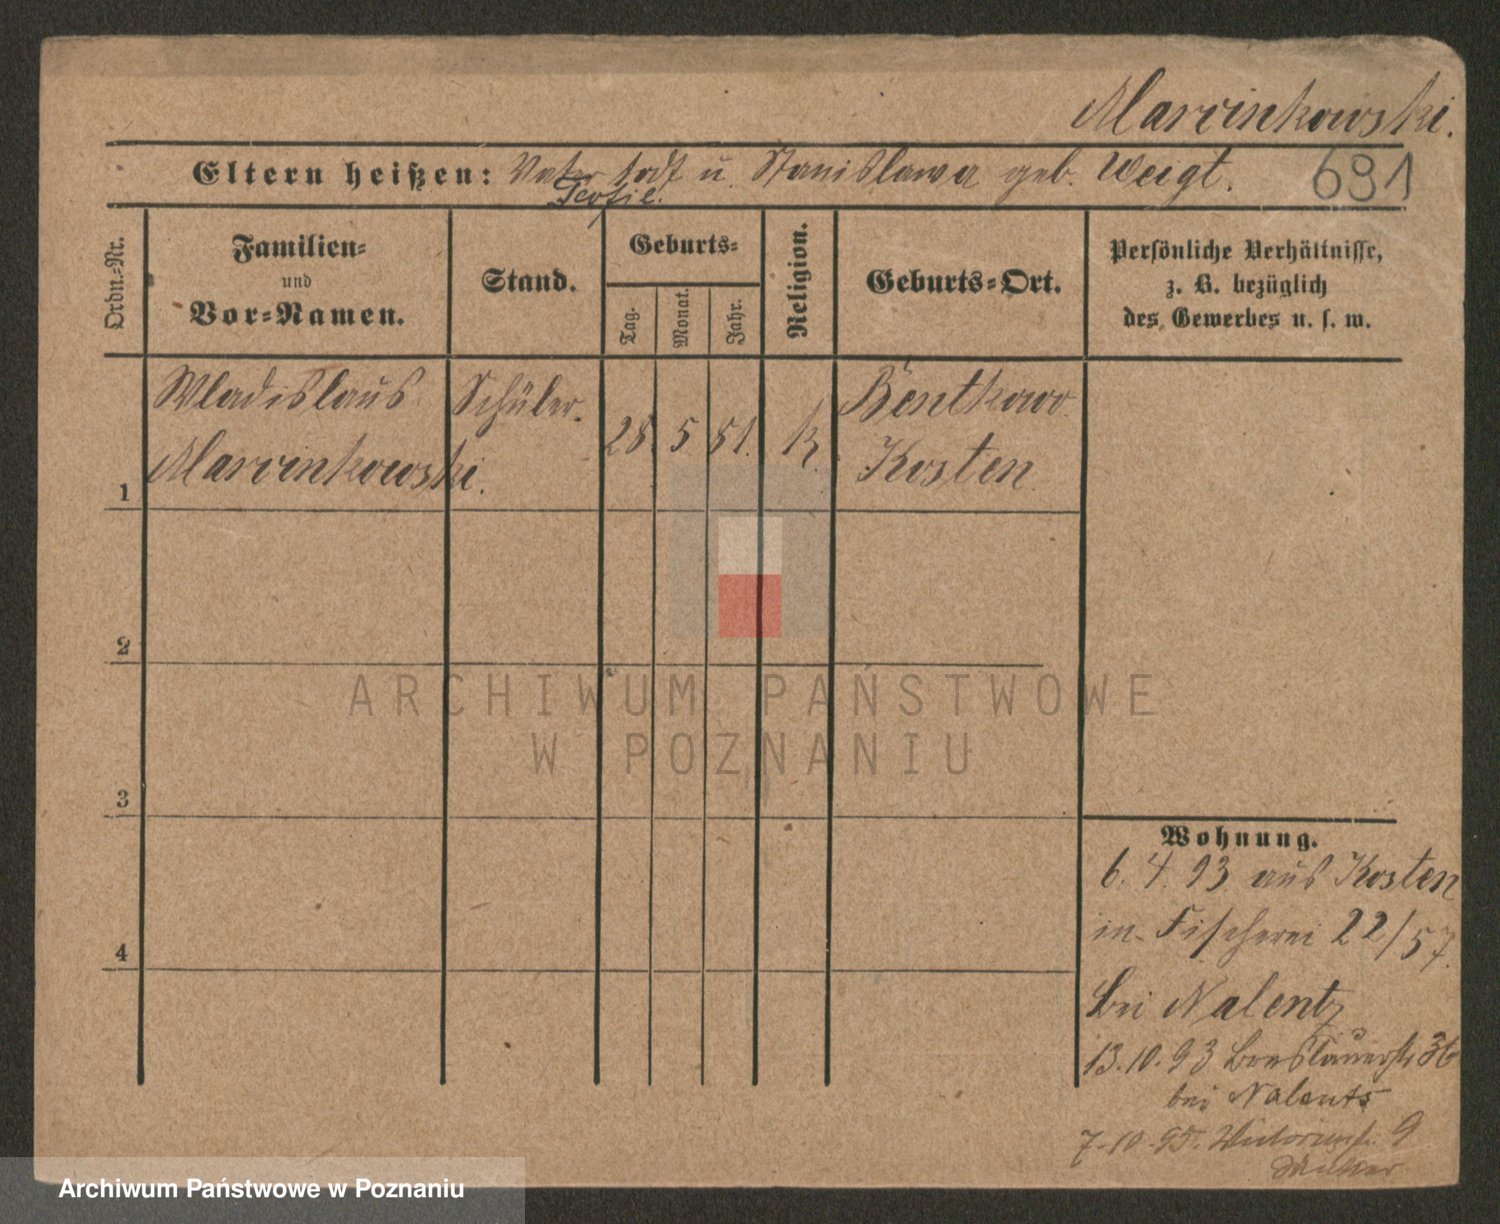 Marcinkowski.
Eltern heißen: Vater todt u. Stanislawa geb. Weigt.
Teofil.
691
Ordn.-Nr.
Familien-
und
Vor-Namen.
Stand.
Geburts-
Tag.
Monat.
Jahr.
Religion.
Geburts-Ort.
Persönliche Verhältnisse,
z. B. bezüglich
des Gewerbes u. s. w.
1
Wladislaus
Marcinkowski.
Schüler.
28. 5. 81.
k
Bentkowo
Kosten
2
3
4
ARCHIWUM PAŃSTWOWE
W POZNANIU
Wohnung.
6. 4. 93 aus Kosten
in Fischerei 22/57.
bei Nalentz
13.10.93 Breslauerstr 36
bei Nalents
7-10-95. Victoriastr. 9
Mutter
Archiwum Państwowe w Poznaniu